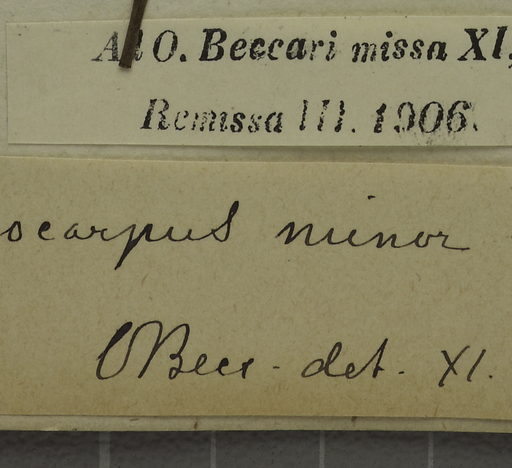 Ad O. Beccari missa XI,
Remissa III. 1906.
ocarpus minor
OBecc. det. XI.